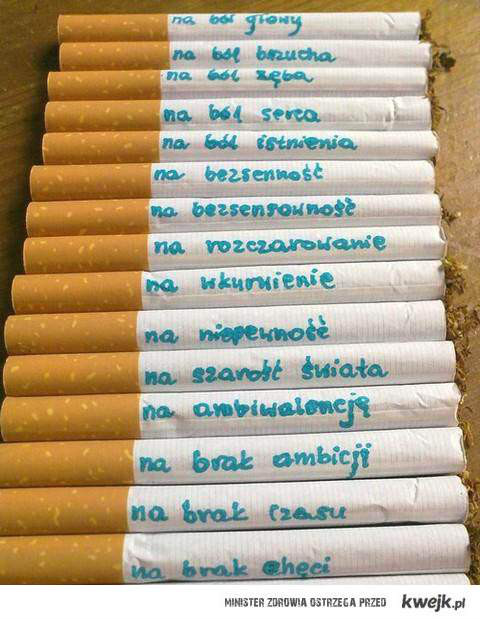 na ból głowy
na ból brzucha
na ból zęba
na ból serca
na ból istnienia
na bezsenność
na bezsensowność
na rozczarowanie
na wkurwienie
na niepewność
na szarość świata
na ambiwalencję
na brak ambicji
na brak czasu
na brak chęci
MINISTER ZDROWIA OSTRZEGA PRZED kwejk.pl